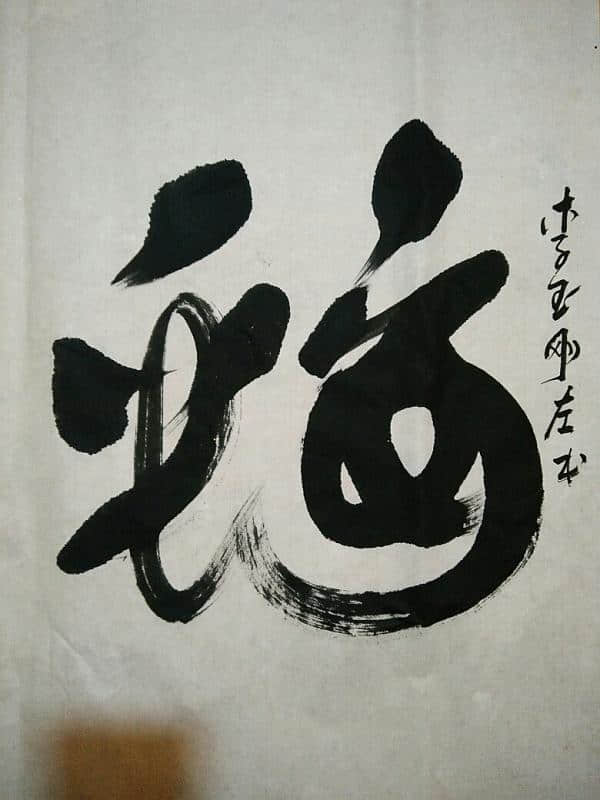 福
李玉刚左书